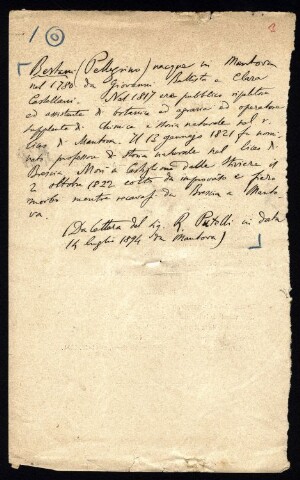 1 0
2
Bertani (Pellegrino) nacque in Mantova
nel 1780 da Giovanni Battista e Clara
Castellani. Nel 1817 era pubblico ripetitore
ed assistente di botanica ed agraria ed operatore
supplente di Chimica e Storia naturale nel r.
liceo di Mantova. Il 12 gennajo 1821 fu nomi-
nato professore di Storia naturale nel liceo di
Brescia. Morì a Castiglione delle Stiviere il
2 ottobre 1822 colto da improvviso e fiero
morbo mentre recavasi da Brescia a Manto-
va.
(Da lettera del Sig. R. in data
14 luglio 1894 da Mantova)